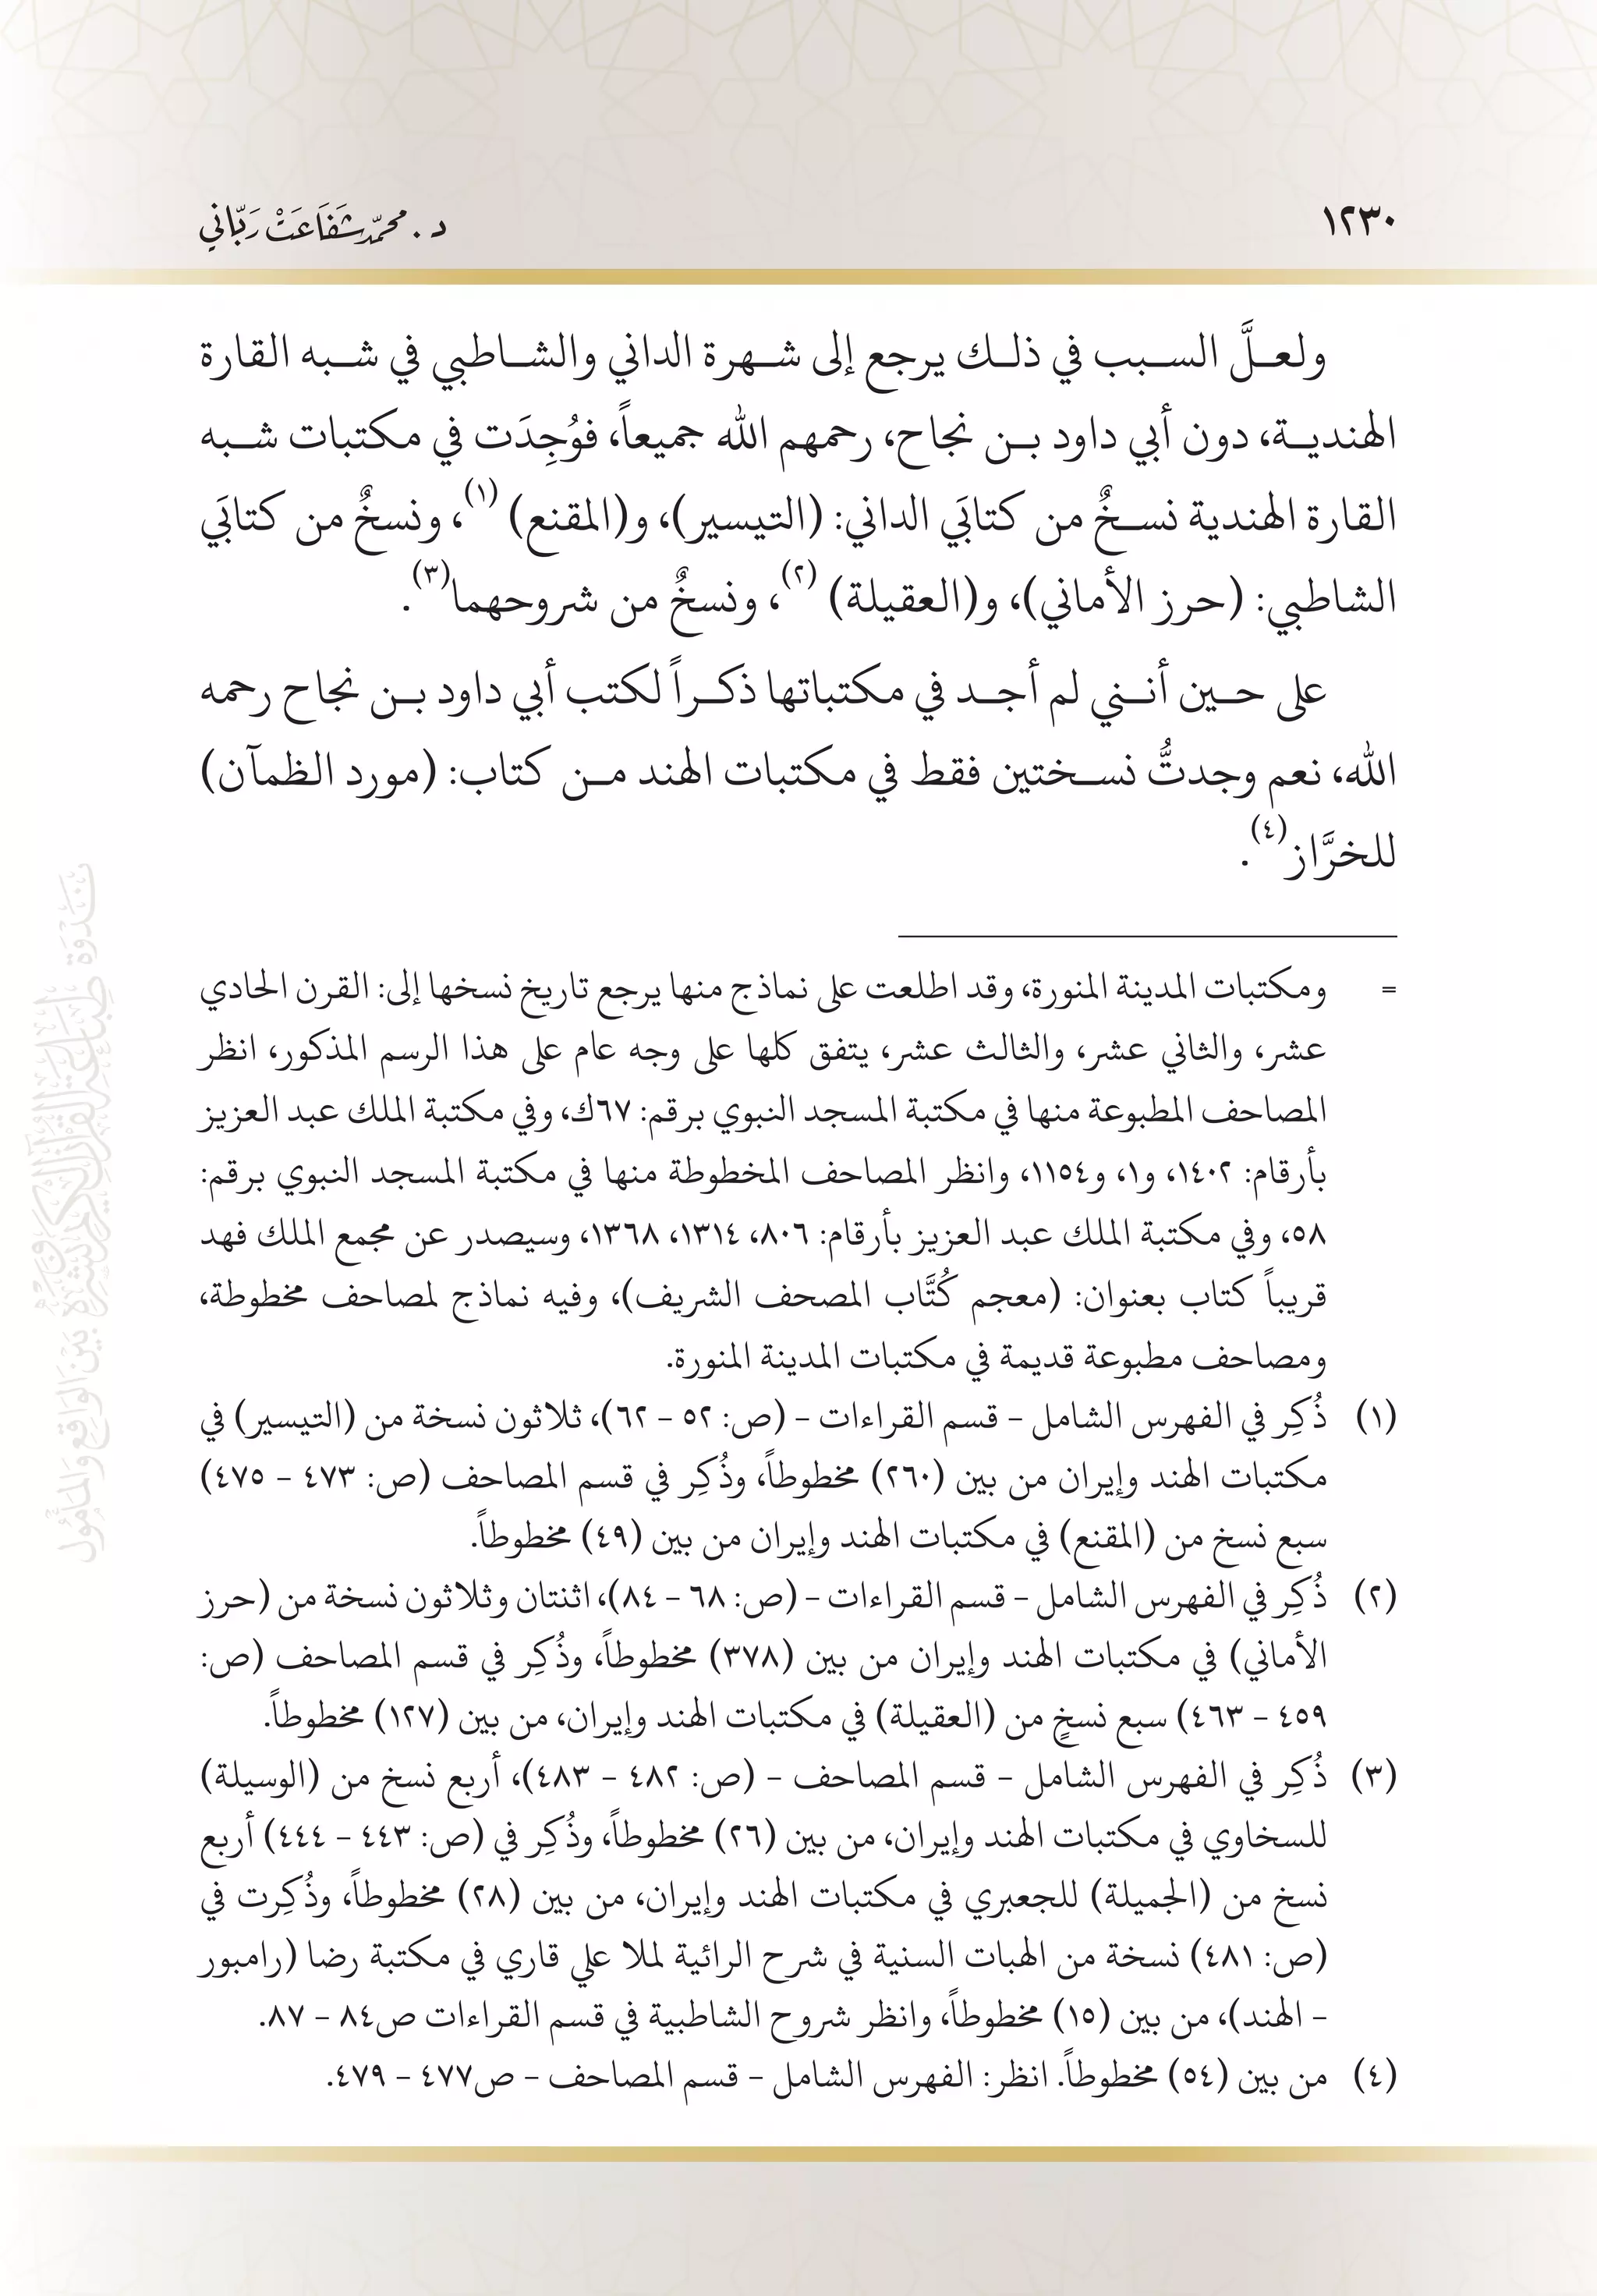 ١٢٣٠
د. محمّد شَفَاعَتْ رَبّاني
ولعلَّ السبب في ذلك يرجع إلى شهرة الداني والشاطبي في شبه القارة
الهندية، دون أبي داود بن نجاح، رحمهم الله جميعاً، فوُجِدَت في مكتبات شبه
القارة الهندية نسخٌ من كتابَي الداني: (التيسير)، و(المقنع) (١)، ونسخٌ من كتابَي
الشاطبي: (حرز الأماني)، و(العقيلة) (٢)، ونسخٌ من شروحهما(٣).
على حين أنني لم أجد في مكتباتها ذكراً لكتب أبي داود بن نجاح رحمه
الله، نعم وجدتُّ نسختين فقط في مكتبات الهند من كتاب: (مورد الظمآن)
للخرَّاز(٤).
= ومكتبات المدينة المنورة، وقد اطلعت على نماذج منها يرجع تاريخ نسخها إلى: القرن الحادي
عشر، والثاني عشر، والثالث عشر، يتفق كلها على وجه عام على هذا الرسم المذكور، انظر
المصاحف المطبوعة منها في مكتبة المسجد النبوي برقم: ٦٧ك، وفي مكتبة الملك عبد العزيز
بأرقام: ١٤٠٢، و١، و١١٥٤، وانظر المصاحف المخطوطة منها في مكتبة المسجد النبوي برقم:
٥٨، وفي مكتبة الملك عبد العزيز بأرقام: ٨٠٦، ١٣١٤، ١٣٦٨، وسيصدر عن مجمع الملك فهد
قريباً كتاب بعنوان: (معجم كُتَّاب المصحف الشريف)، وفيه نماذج لمصاحف مخطوطة،
ومصاحف مطبوعة قديمة في مكتبات المدينة المنورة.
(١) ذُكِر في الفهرس الشامل - قسم القراءات - (ص: ٥٢ - ٦٢)، ثلاثون نسخة من (التيسير) في
مكتبات الهند وإيران من بين (٢٦٠) مخطوطاً، وذُكِر في قسم المصاحف (ص: ٤٧٣ - ٤٧٥)
سبع نسخ من (المقنع) في مكتبات الهند وإيران من بين (٤٩) مخطوطاً.
(٢) ذُكِر في الفهرس الشامل - قسم القراءات - (ص: ٦٨ - ٨٤)، اثنتان وثلاثون نسخة من (حرز
الأماني) في مكتبات الهند وإيران من بين (٣٧٨) مخطوطاً، وذُكِر في قسم المصاحف (ص:
٤٥٩ - ٤٦٣) سبع نسخٍ من (العقيلة) في مكتبات الهند وإيران، من بين (١٢٧) مخطوطاً.
(٣) ذُكِر في الفهرس الشامل - قسم المصاحف - (ص: ٤٨٢ - ٤٨٣)، أربع نسخ من (الوسيلة)
للسخاوي في مكتبات الهند وإيران، من بين (٢٦) مخطوطاً، وذُكِر في (ص: ٤٤٣ - ٤٤٤) أربع
نسخ من (الجميلة) للجعبري في مكتبات الهند وإيران، من بين (٢٨) مخطوطاً، وذُكِرت في
(ص: ٤٨١) نسخة من الهبات السنية في شرح الرائية لملا علي قاري في مكتبة رضا (رامبور
- الهند)، من بين (١٥) مخطوطاً، وانظر شروح الشاطبية في قسم القراءات ص٨٤ - ٨٧.
(٤) من بين (٥٤) مخطوطاً. انظر: الفهرس الشامل - قسم المصاحف - ص٤٧٧ - ٤٧٩.
نَدْوَة طِبَاعَة القُرآن الكَرِيم وَنَشْرِهِ بَيْنَ الوَاقِعِ وَالمَأْمُول